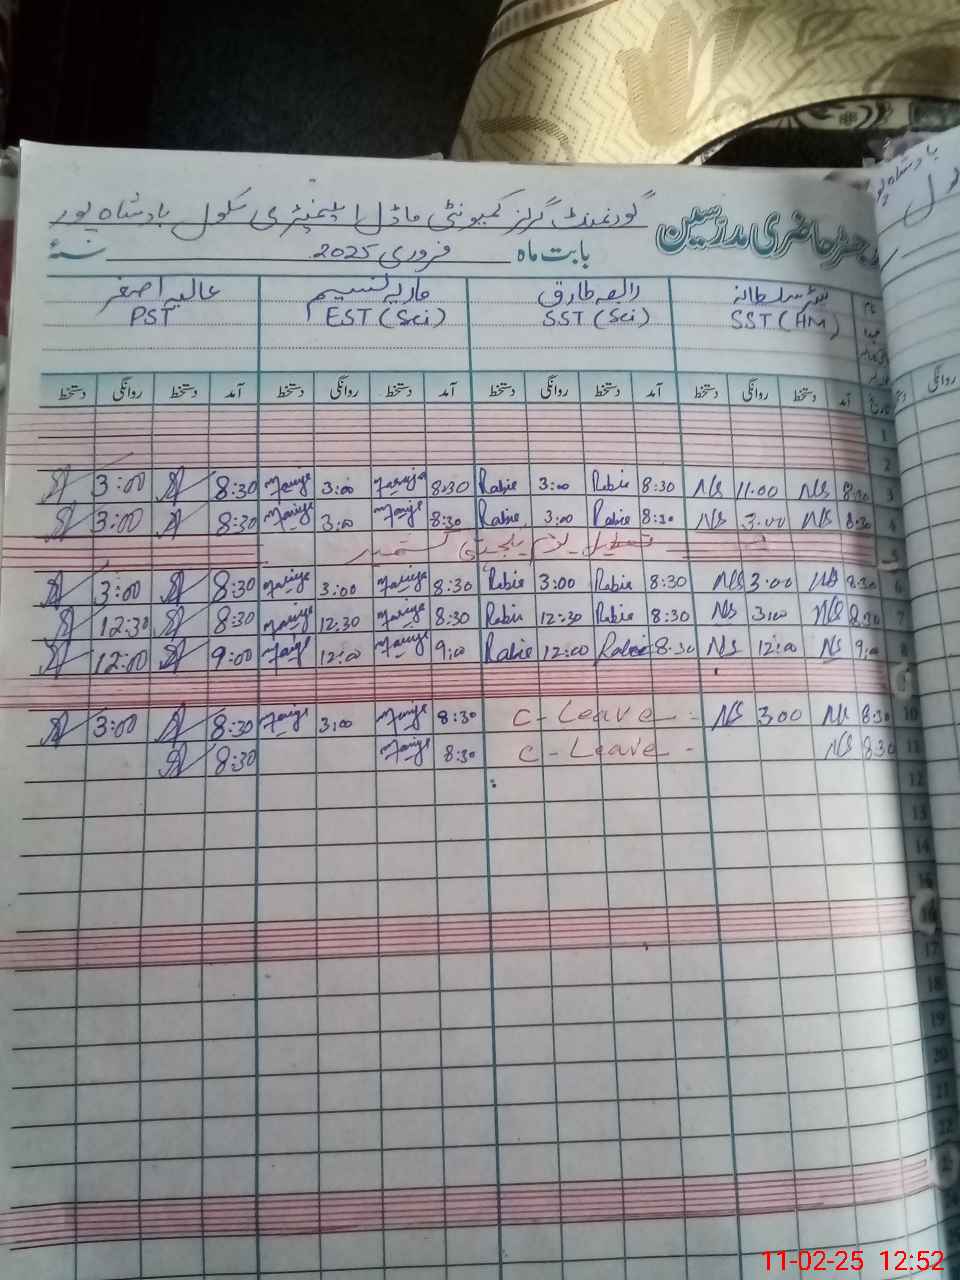 رجسٹر حاضری مدرسین
گورنمنٹ گرلز کمیونٹی ماڈل ایلیمنٹری سکول بادشاہ پور
بابت ماہ فروری 2025
نام رابعہ طارق ماریہ نسیم عالیہ اصغر
SST (HM) SST (Sci) EST (Sci) PST
تاریخ آمد دستخط روانگی دستخط آمد دستخط روانگی دستخط آمد دستخط روانگی دستخط آمد دستخط روانگی دستخط
روانگی
1
2
3 8:30 NS 11:00 NS 8:30 Rabia 3:00 Rabia 8:30 3:00 8:30 3:00
4 8:30 NS 3:00 NS 8:30 Rabia 3:00 Rabia 8:30 3:00 8:30 3:00
5 تعطیل یوم یکجہتی کشمیر
6 8:30 NS 3:00 NS 8:30 Rabia 3:00 Rabia 8:30 3:00 8:30 3:00
7 8:30 NS 3:00 NS 8:30 Rabia 12:30 Rabia 8:30 12:30 8:30 12:30
8 9:00 NS 12:00 NS 8:30 Rabia 12:00 Rabia 9:00 12:00 9:00 12:00
10 8:30 NS 3:00 NS C-Leave 8:30 3:00 8:30 3:00
11 8:30 NS C-Leave - 8:30 8:30
12
13
14
15
16
17
18
19
20
21
22
11-02-25 12:52